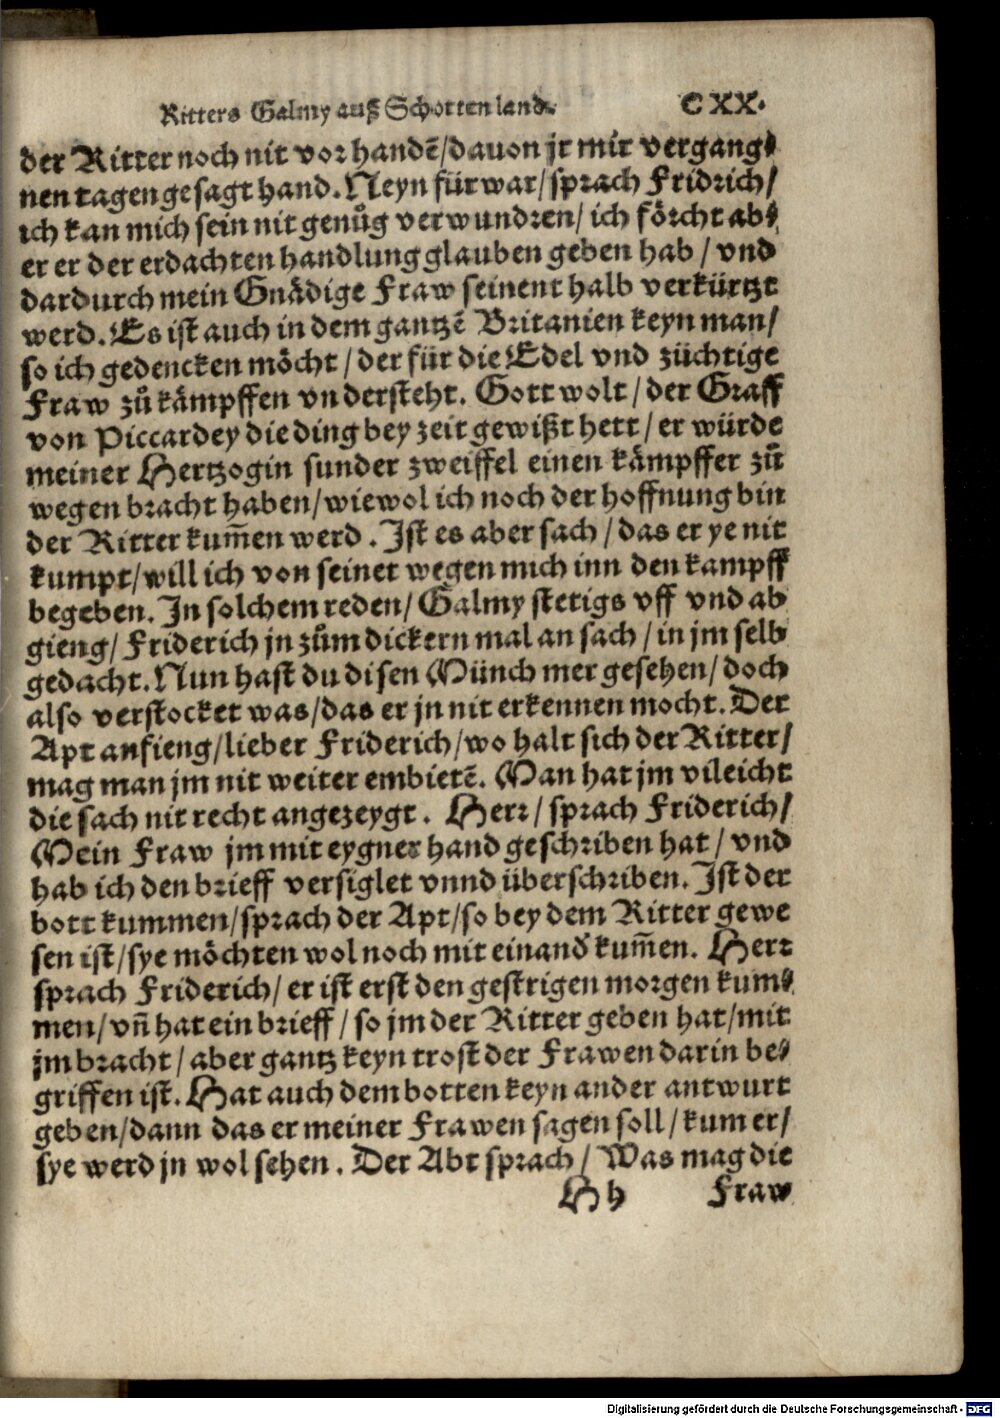 Ritters Galmy auß Schotten land. CXX.
der Ritter noch nit vor handē/dauon jr mir vergang⸗
nen tagen gesagt hand. Neyn fürwar/sprach Fridrich/
ich kan mich sein nit genůg verwundren/ ich förcht ab⸗
er er der erdachten handlung glauben geben hab / vnd
dardurch mein Gnädige Fraw seinent halb verkürtzt
werd. Es ist auch in dem gantzē Britanien keyn man/
so ich gedencken möcht / der für die Edel vnd züchtige
Fraw zů kämpffen vndersteht. Gott wolt / der Graff
von Piccardey die ding bey zeit gewißt hett / er würde
meiner Hertzogin sunder zweiffel einen kämpffer zů
wegen bracht haben/wiewol ich noch der hoffnung bin
der Ritter kum̄en werd . Ist es aber sach / das er ye nit
kumpt/will ich von seinet wegen mich inn den kampff
begeben. In solchem reden/ Galmy stetigs vff vnd ab
gieng/ Friderich jn zům dickern mal an sach / in jm selb
gedacht. Nun hast du disen Münch mer gesehen/ doch
also verstocket was/das er jn nit erkennen mocht. Der
Apt anfieng/lieber Friderich/wo halt sich der Ritter/
mag man jm nit weiter embietē. Man hat jm vileicht
die sach nit recht angezeygt . Herr/ sprach Friderich/
Mein Fraw jm mit eygner hand geschriben hat / vnd
hab ich den brieff versiglet vnnd überschriben. Ist der
bott kummen/sprach der Apt/so bey dem Ritter gewe
sen ist/sye möchten wol noch mit einand̛ kum̄en. Herr
sprach Friderich/ er ist erst den gestrigen morgen kum⸗
men/ vn̄ hat ein brieff / so jm der Ritter geben hat/mit
jm bracht / aber gantz keyn trost der Frawen darin be⸗
griffen ist. Hat auch dem botten keyn ander antwurt
geben/dann das er meiner Frawen sagen soll / kum er/
sye werd jn wol sehen . Der Abt sprach / Was mag die
Hh Fraw
Digitalisierung gefördert durch die Deutsche Forschungsgemeinschaft - DFG